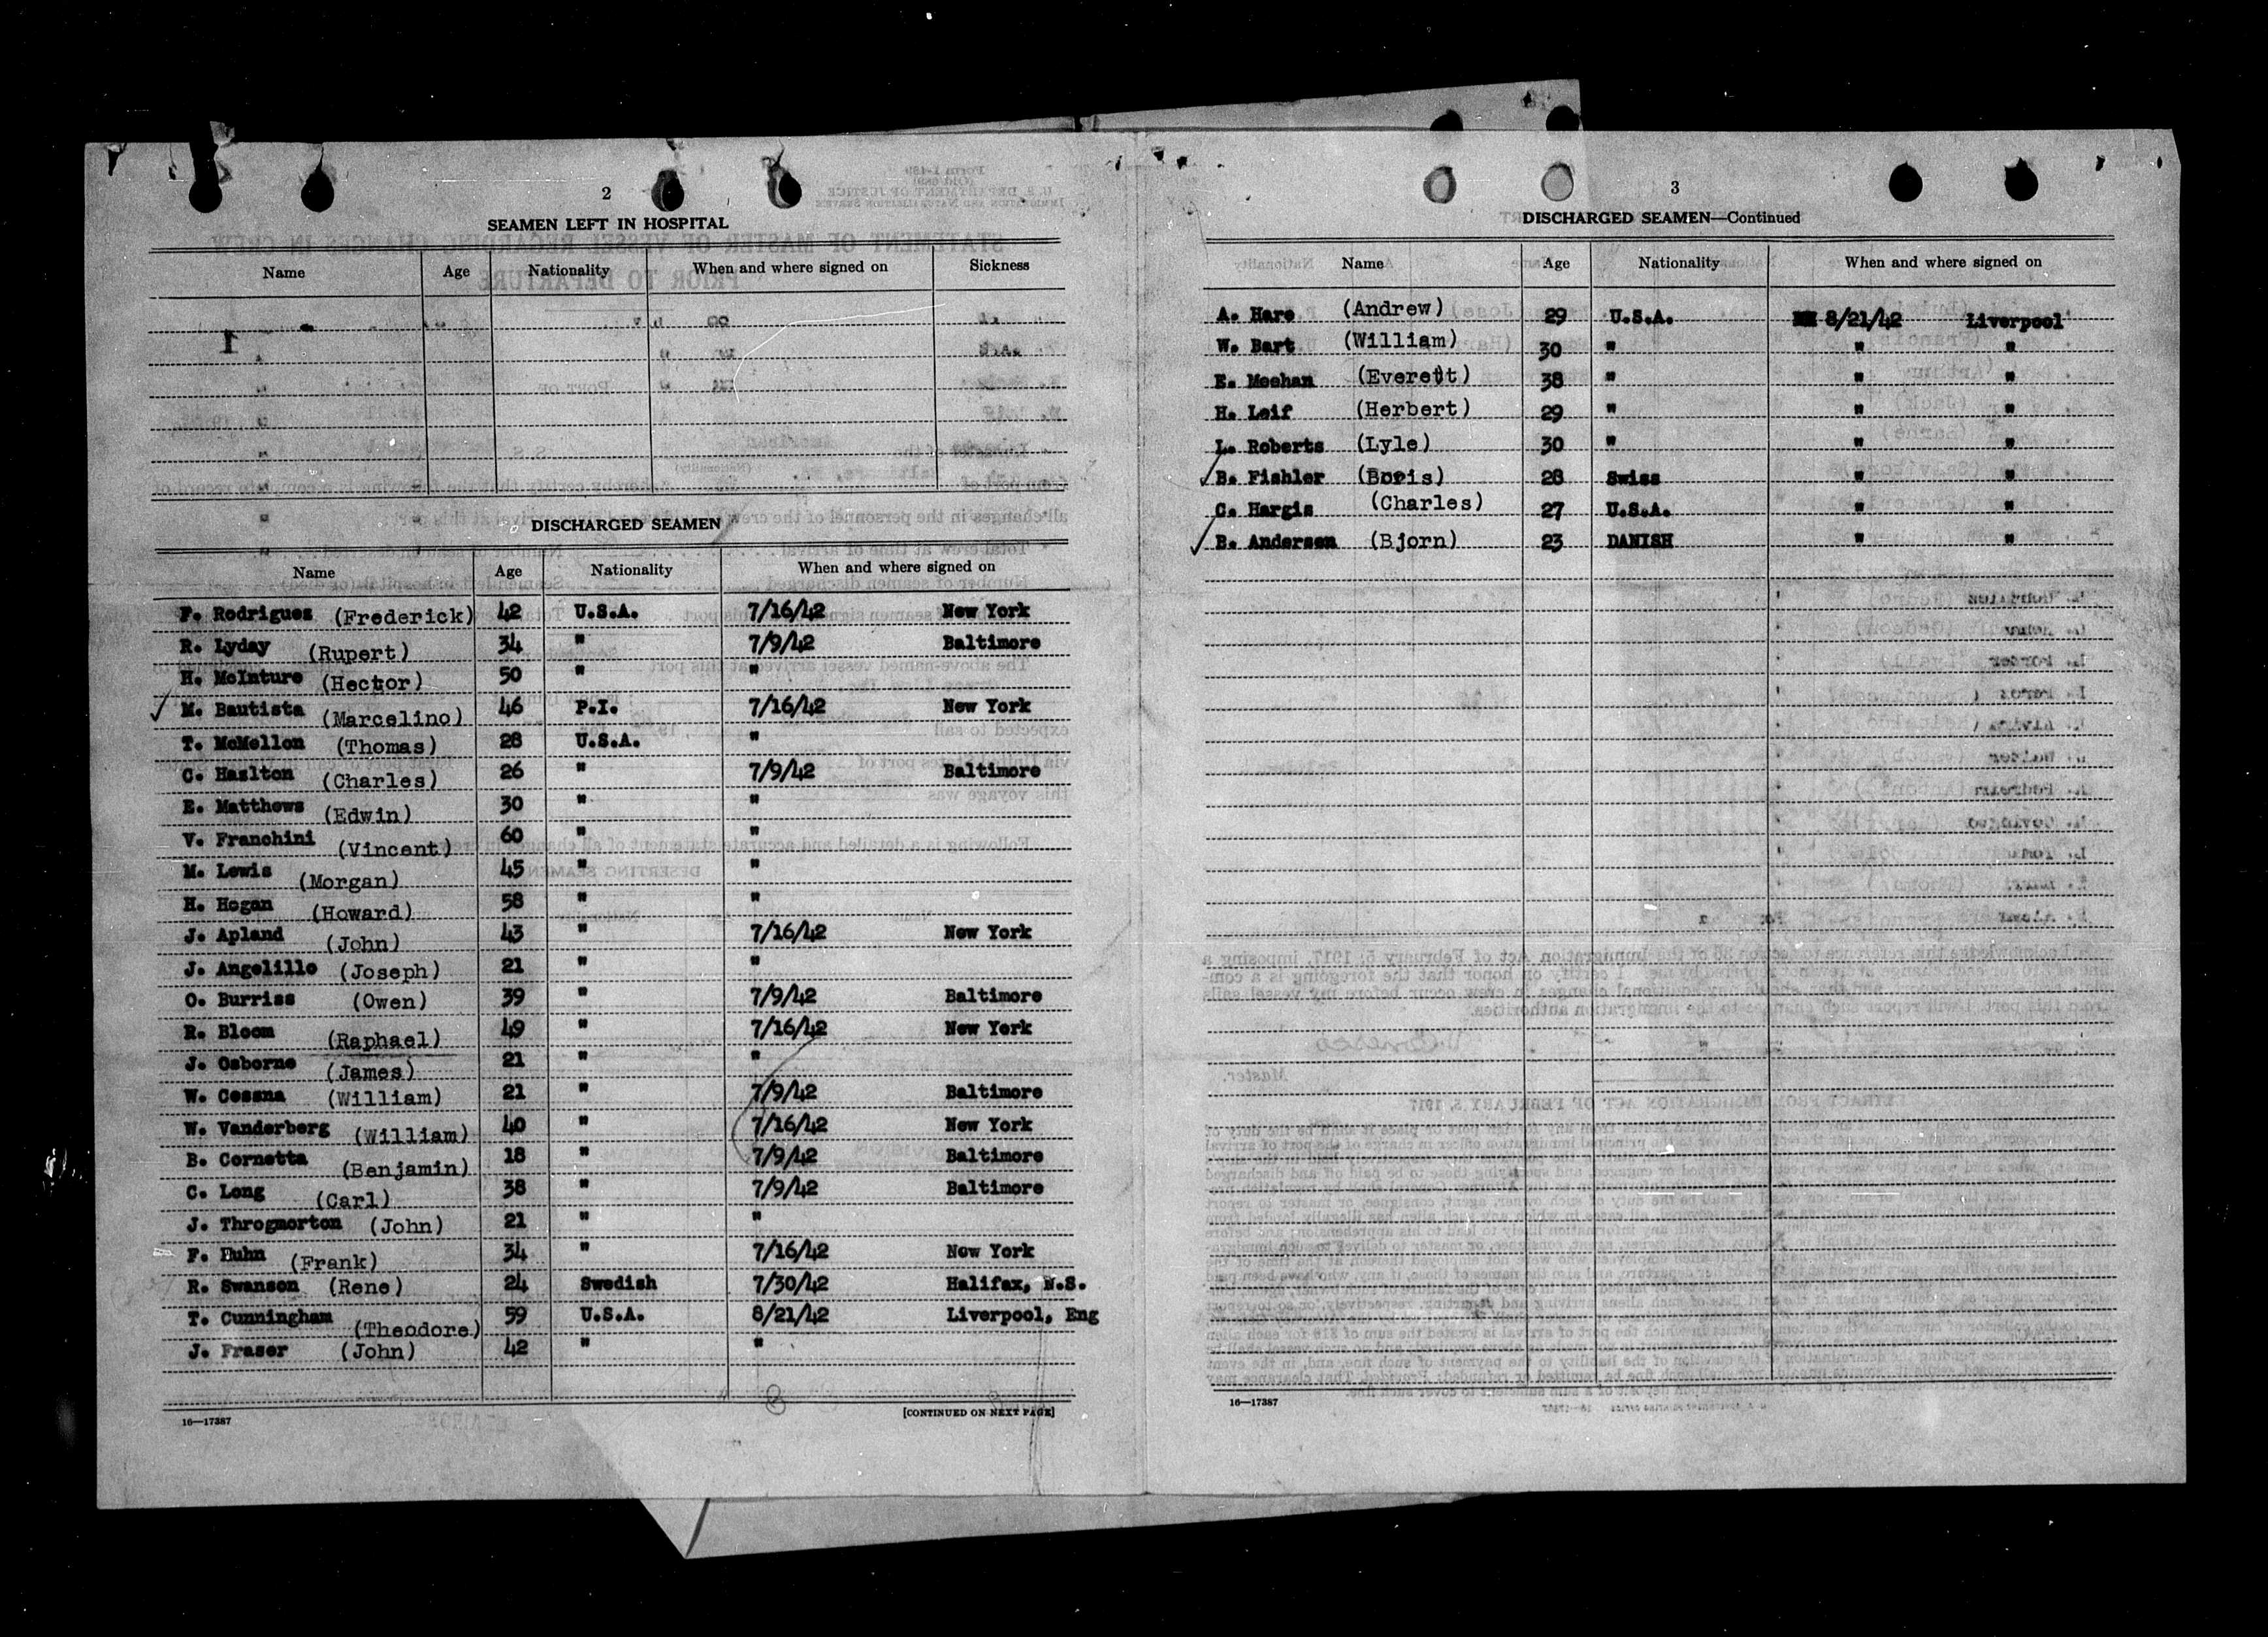 2
SEAMEN LEFT IN HOSPITAL
Name Age Nationality When and where signed on Sickness
DISCHARGED SEAMEN
Name Age Nationality When and where signed on
F. Rodrigues (Frederick) 42 U.S.A. 7/16/42 New York
R. Lyday (Rupert) 34 " 7/9/42 Baltimore
H. McInture (Hector) 50 " "
M. Bautista (Marcelino) 46 P.I. 7/16/42 New York
T. McMellon (Thomas) 28 U.S.A. "
C. Haslton (Charles) 26 " 7/9/42 Baltimore
E. Matthews (Edwin) 30 " "
V. Franchini (Vincent) 60 " "
M. Lewis (Morgan) 45 " "
H. Hogan (Howard) 58 " "
J. Apland (John) 43 " 7/16/42 New York
J. Angelillo (Joseph) 21 " "
O. Burriss (Owen) 39 " 7/9/42 Baltimore
R. Bloom (Raphael) 49 " 7/16/42 New York
J. Osborne (James) 21 " "
W. Cessna (William) 21 " 7/9/42 Baltimore
W. Vanderberg (William) 40 " 7/16/42 New York
B. Cornetta (Benjamin) 18 " 7/9/42 Baltimore
C. Long (Carl) 38 " 7/9/42 Baltimore
J. Throgmorton (John) 21 " "
F. Huhn (Frank) 34 " 7/16/42 New York
R. Swanson (Rene) 24 Swedish 7/30/42 Halifax, N.S.
T. Cunningham (Theodore) 59 U.S.A. 8/21/42 Liverpool, Eng
J. Fraser (John) 42 " "
16—17387 [CONTINUED ON NEXT PAGE]
3
DISCHARGED SEAMEN—Continued
Name Age Nationality When and where signed on
A. Hare (Andrew) 29 U.S.A. 8/21/42 Liverpool
W. Bart (William) 30 " " "
E. Meehan (Everett) 38 " " "
H. Leif (Herbert) 29 " " "
L. Roberts (Lyle) 30 " " "
B. Fishler (Boris) 28 Swiss " "
C. Hargis (Charles) 27 U.S.A. " "
B. Andersen (Bjorn) 23 DANISH " "
16—17387